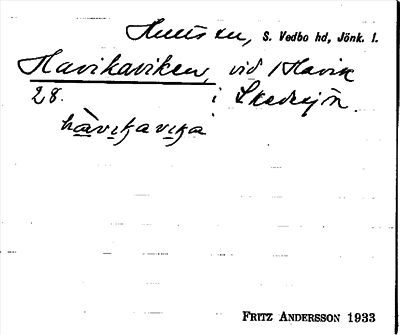 Hults sn, S. Vedbo hd, Jönk. l.
Havikaviken, vid Havik
28. i Skedesjön.
hàvikavika
FRITZ ANDERSSON 1933